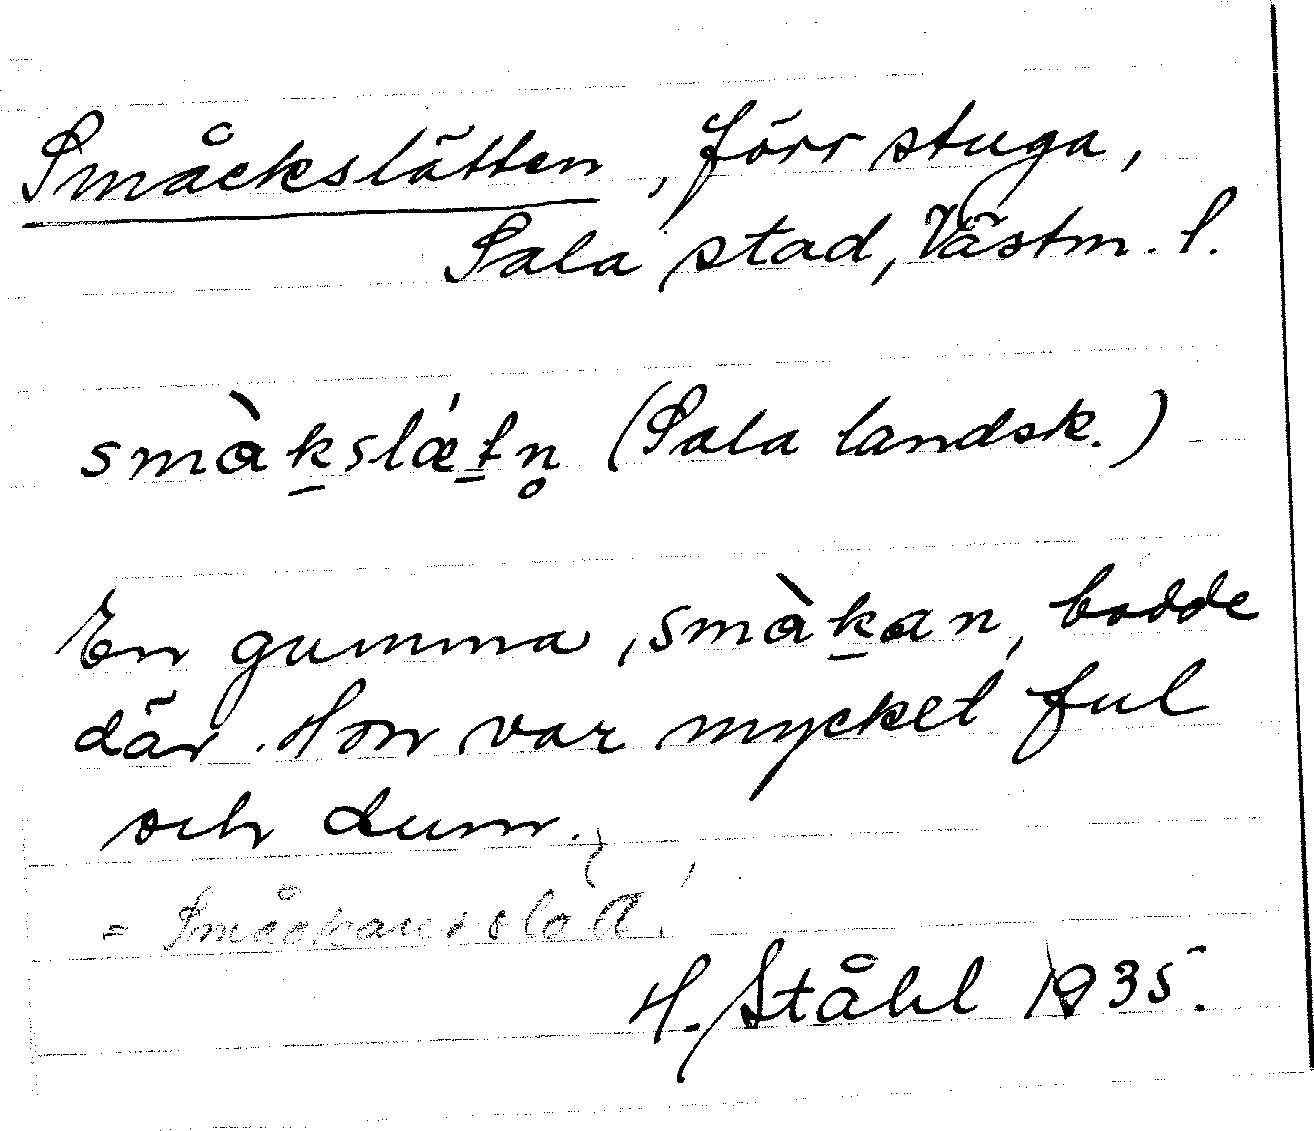 Småckslätten, förr stuga,
Sala stad, Västm. l.
småk̲slæ̀t̲n̥ (Sala landsk.)
En gumma, småk̲an, bodde
där. Hon var mycket ful
och dum.
= Småckans slätt.
H. Ståhl 1935.